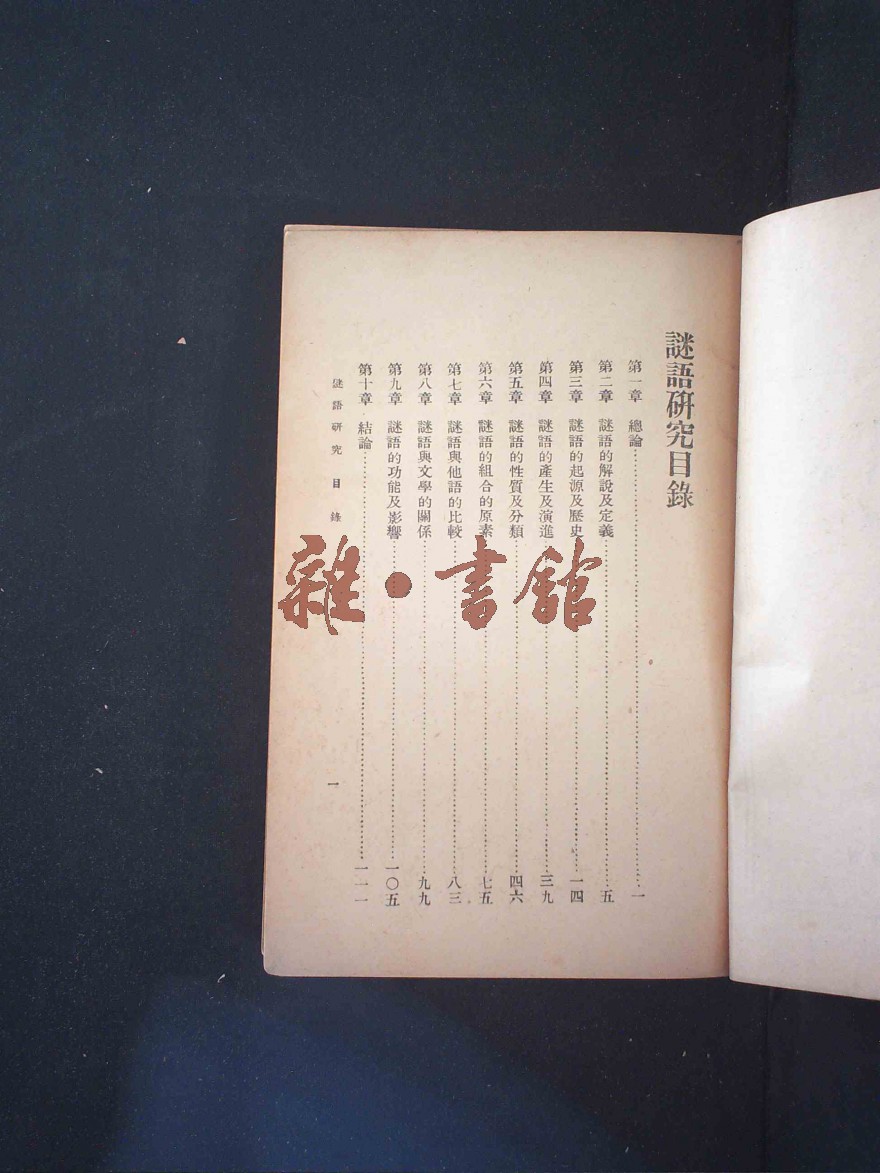 謎語硏究目錄
第一章 總論……一
第二章 謎語的解說及定義……五
第三章 謎語的起源及歷史……一四
第四章 謎語的產生及演進……三九
第五章 謎語的性質及分類……四六
第六章 謎語的組合的原素……七五
第七章 謎語與他語的比較……八三
第八章 謎語與文學的關係……九九
第九章 謎語的功能及影響……一〇五
第十章 結論……一一一
謎語研究 目錄
一
雜·書館